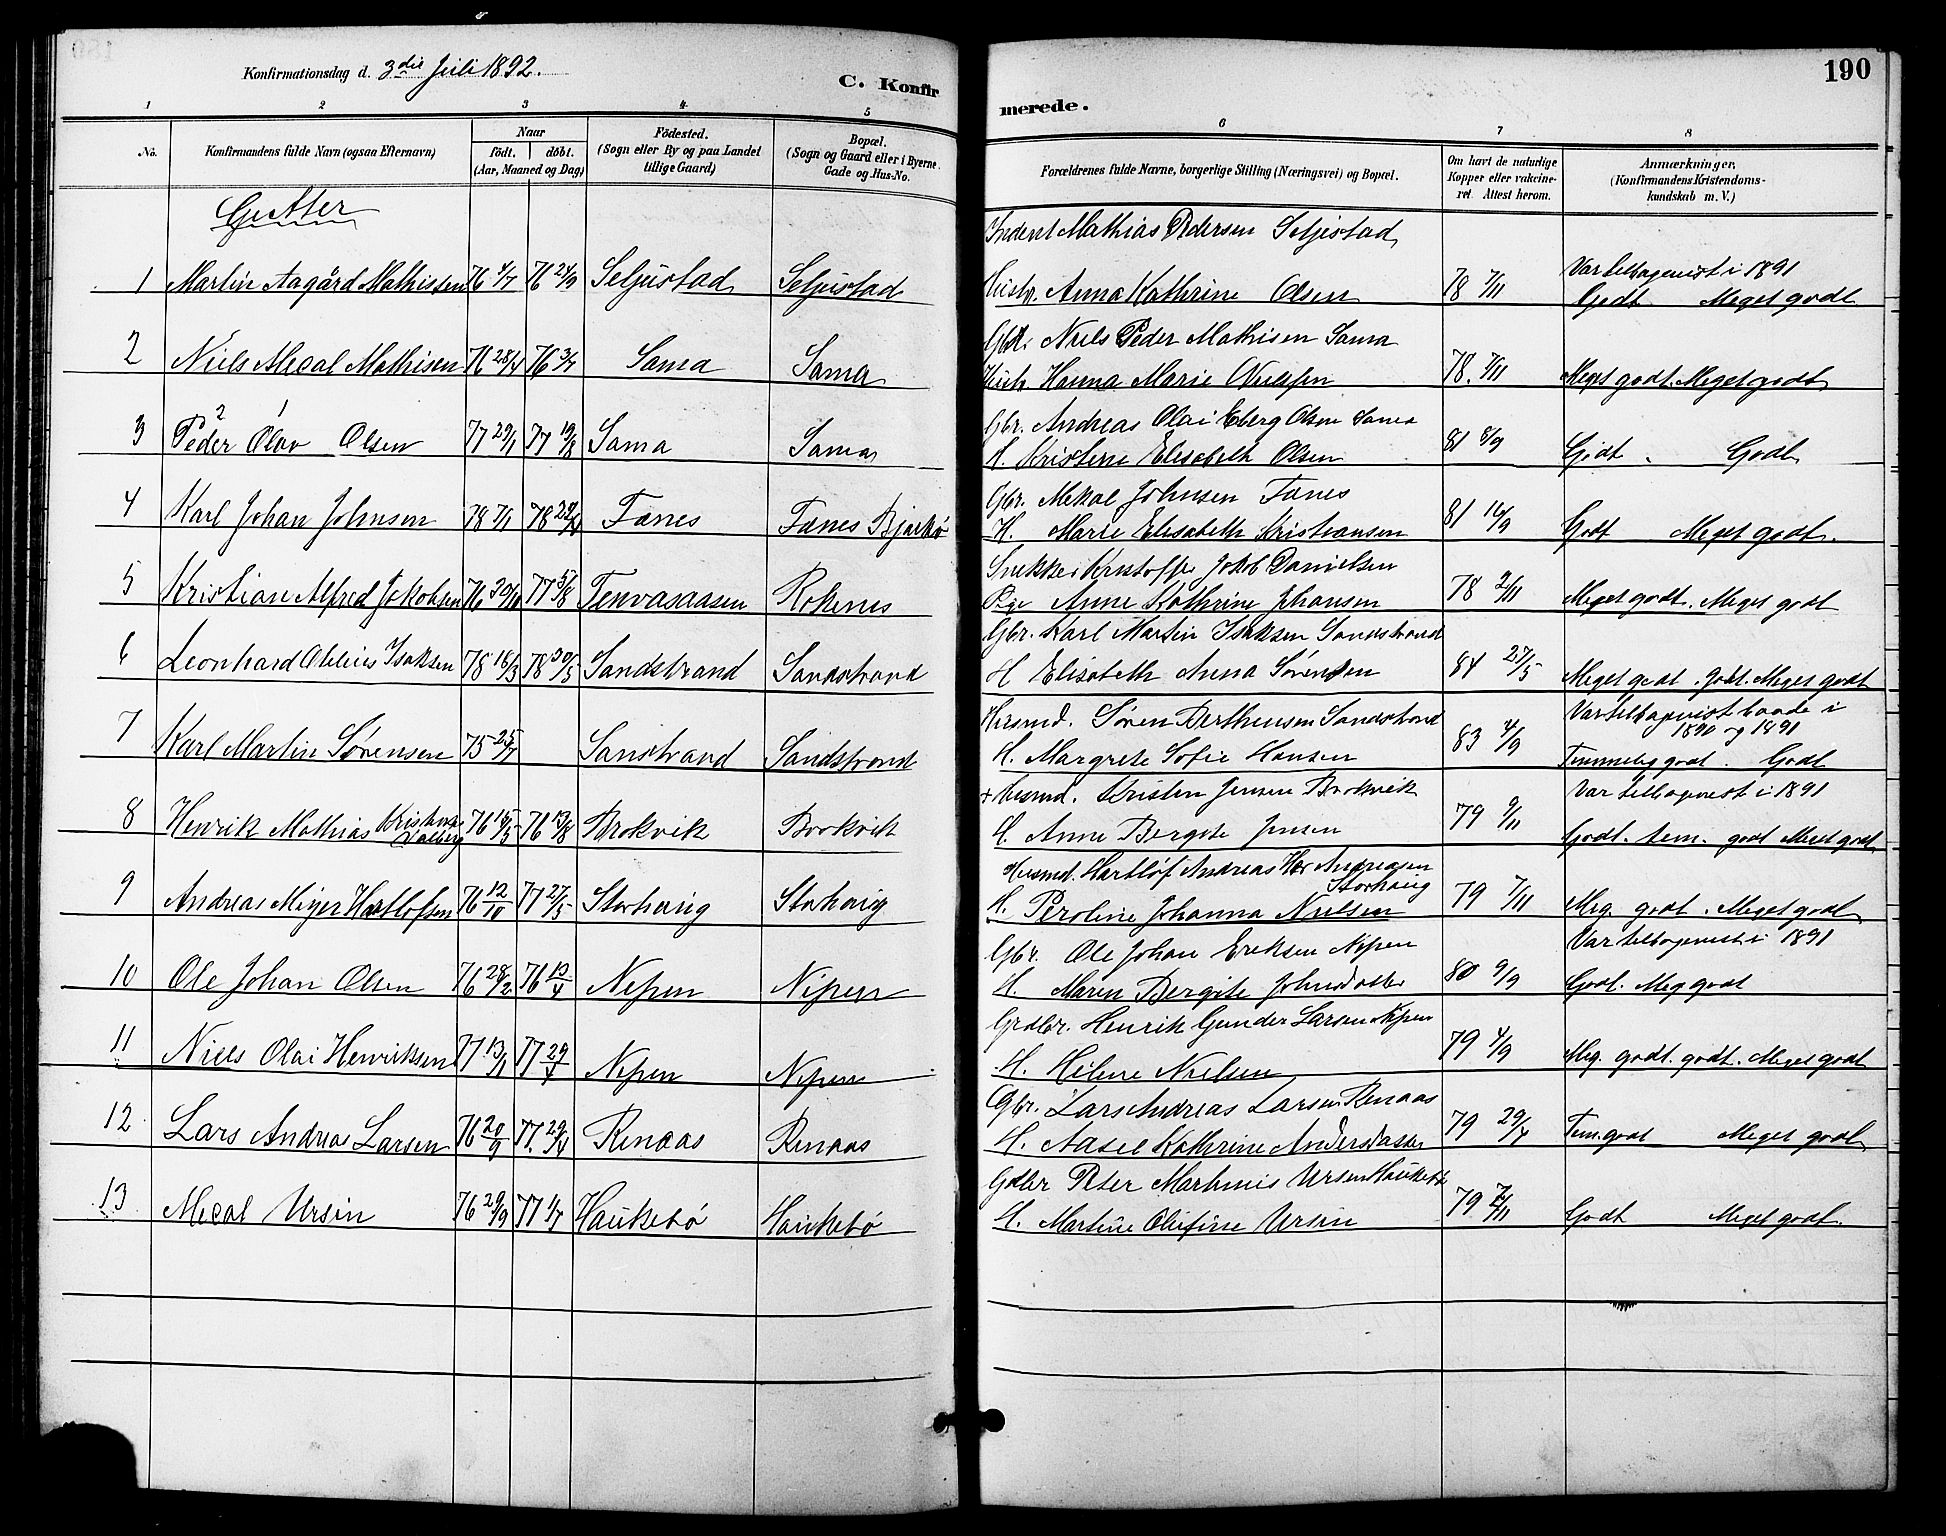 Konfirmationsdag d. 3die Juli 1892.
C. Konfirmerede.
190
1 2 3 4 5 6 7 8
No.
Konfirmandens fulde Navn (ogsaa Efternavn)
Naar
födt. döbt.
(Aar, Maaned og Dag)
Födested.
(Sogn eller By og paa Landet
tillige Gaard)
Bopæl.
(Sogn og Gaard eller i Byerne
Gade og Hus-No.
Forældrenes fulde Navne, borgerlige Stilling (Næringsvei) og Bopæl.
Om havt de naturlige
Kopper eller vakcine-
ret. Attest herom.
Anmærkninger.
(Konfirmandens Kristendoms-
kundskab m. V.)
Gutter
Inderst Mathias Pedersen Seljestad
Var tilbagevist i 1891
1 Martin Aagård Mathissen 76 4/7 76 24/9 Seljestad Seljestad Hustr. Anna Kathrine Olsen 78 7/11 Godt Meget godt
Gbr. Niels Peder Mathisen Sama
2 Niels Mecal Mathisen 76 28/4 76 3/7 Sama Sama Hustr. Hanna Marie Nielsen 78. 7/11 Meget godt. Meget godt
Gbr. Andreas Olai Eberg Olsen Sama
3 Peder Olav Olsen 77 29/1 77 19/8 Sama Sama H. Kristine Elisabeth Olsen 81 8/9 Godt. Godt
Gbr. Mekal Johnsen Fanes
4 Karl Johan Johnsen 78 7/1 78 22/4 Fanes Fanes Bjarkö H. Marie Elisabeth Kristiansen 81 16/9 Godt Meget godt.
Snekker Kristoffer Jakob Danielsen
5 Kristian Alfred Jakobsen 76 30/10 77 5/8 Tenvasaasen Rokenes Pige Anne Kathrine Johansen 78 2/11 Meget godt. Meget godt
Gbr. Karl Martin Isaksen Sandstrand
6 Leonhard Oldines Isaksen 78 18/3 78 30/5 Sandstrand Sandstrand H Elisabeth Anna Sörensen 84 27/5 Meget godt. Godt. Meget godt
Husmd. Sören Berthinsen Sandstrand
Var tilbagevist baade i
1890 og 1891
7 Karl Martin Sörensen 75 25/7 Sanstrand Sandstrand H. Margrete Sofie Hansen 83 4/9 Temmelig godt. Godt
+ Husmd. Kristen Jensen Brokvik
Var tilbagevist i 1891
8 Henrik Mathias Kristensen Valberg 76 15/5 76 13/8 Brokvik Brokvik H. Anne Bergite Jensen 79 9/11 Godt. tem. godt Meget godt
Husmd. Hartlöf Andreas Andreasen
Storhaug
9 Andreas Meyer Hartlofsen 76 12/10 77 27/5 Storhaug Storhaug H. Peroline Johanna Nielsen 79 7/11 Meg. godt. Meget godt
Gbr. Ole Johan Eriksen Nipen
Var tilbagevist i 1891
10 Ole Johan Olsen 76 28/2 76 13/4 Nipen Nipen H. Maren Bergite Johnsdatter 80 9/9 Godt. Meg godt
Grdbr. Henrik Gunder Larsen Nipen
11 Niels Olai Henriksen 77 13/1 77 29/4 Nipen Nipen H. Heline Nielsen 79 4/9 Meg. godt. godt. Meget godt
Gbr. Lars Andreas Larsen Renaas
12 Lars Andreas Larsen 76 20/9 77. 29/4 Renaas Renaas H. Aasel Kathrine Andersdatter 79 29/7 Tem. godt Meget godt
Gdbr Peter Martinus Ursin Haukebö
13 Mecal Ursin 76 29/9 77 1/7 Haukebö Haukebö H. Martine Olufine Ursin 79 7/11 Godt Meget godt.